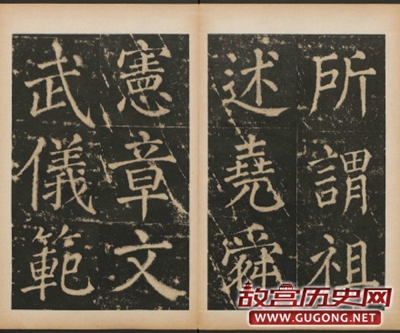 所謂祖
述堯舜
憲章文
武儀範
故宫历史网
WWW.GUGONG.NET